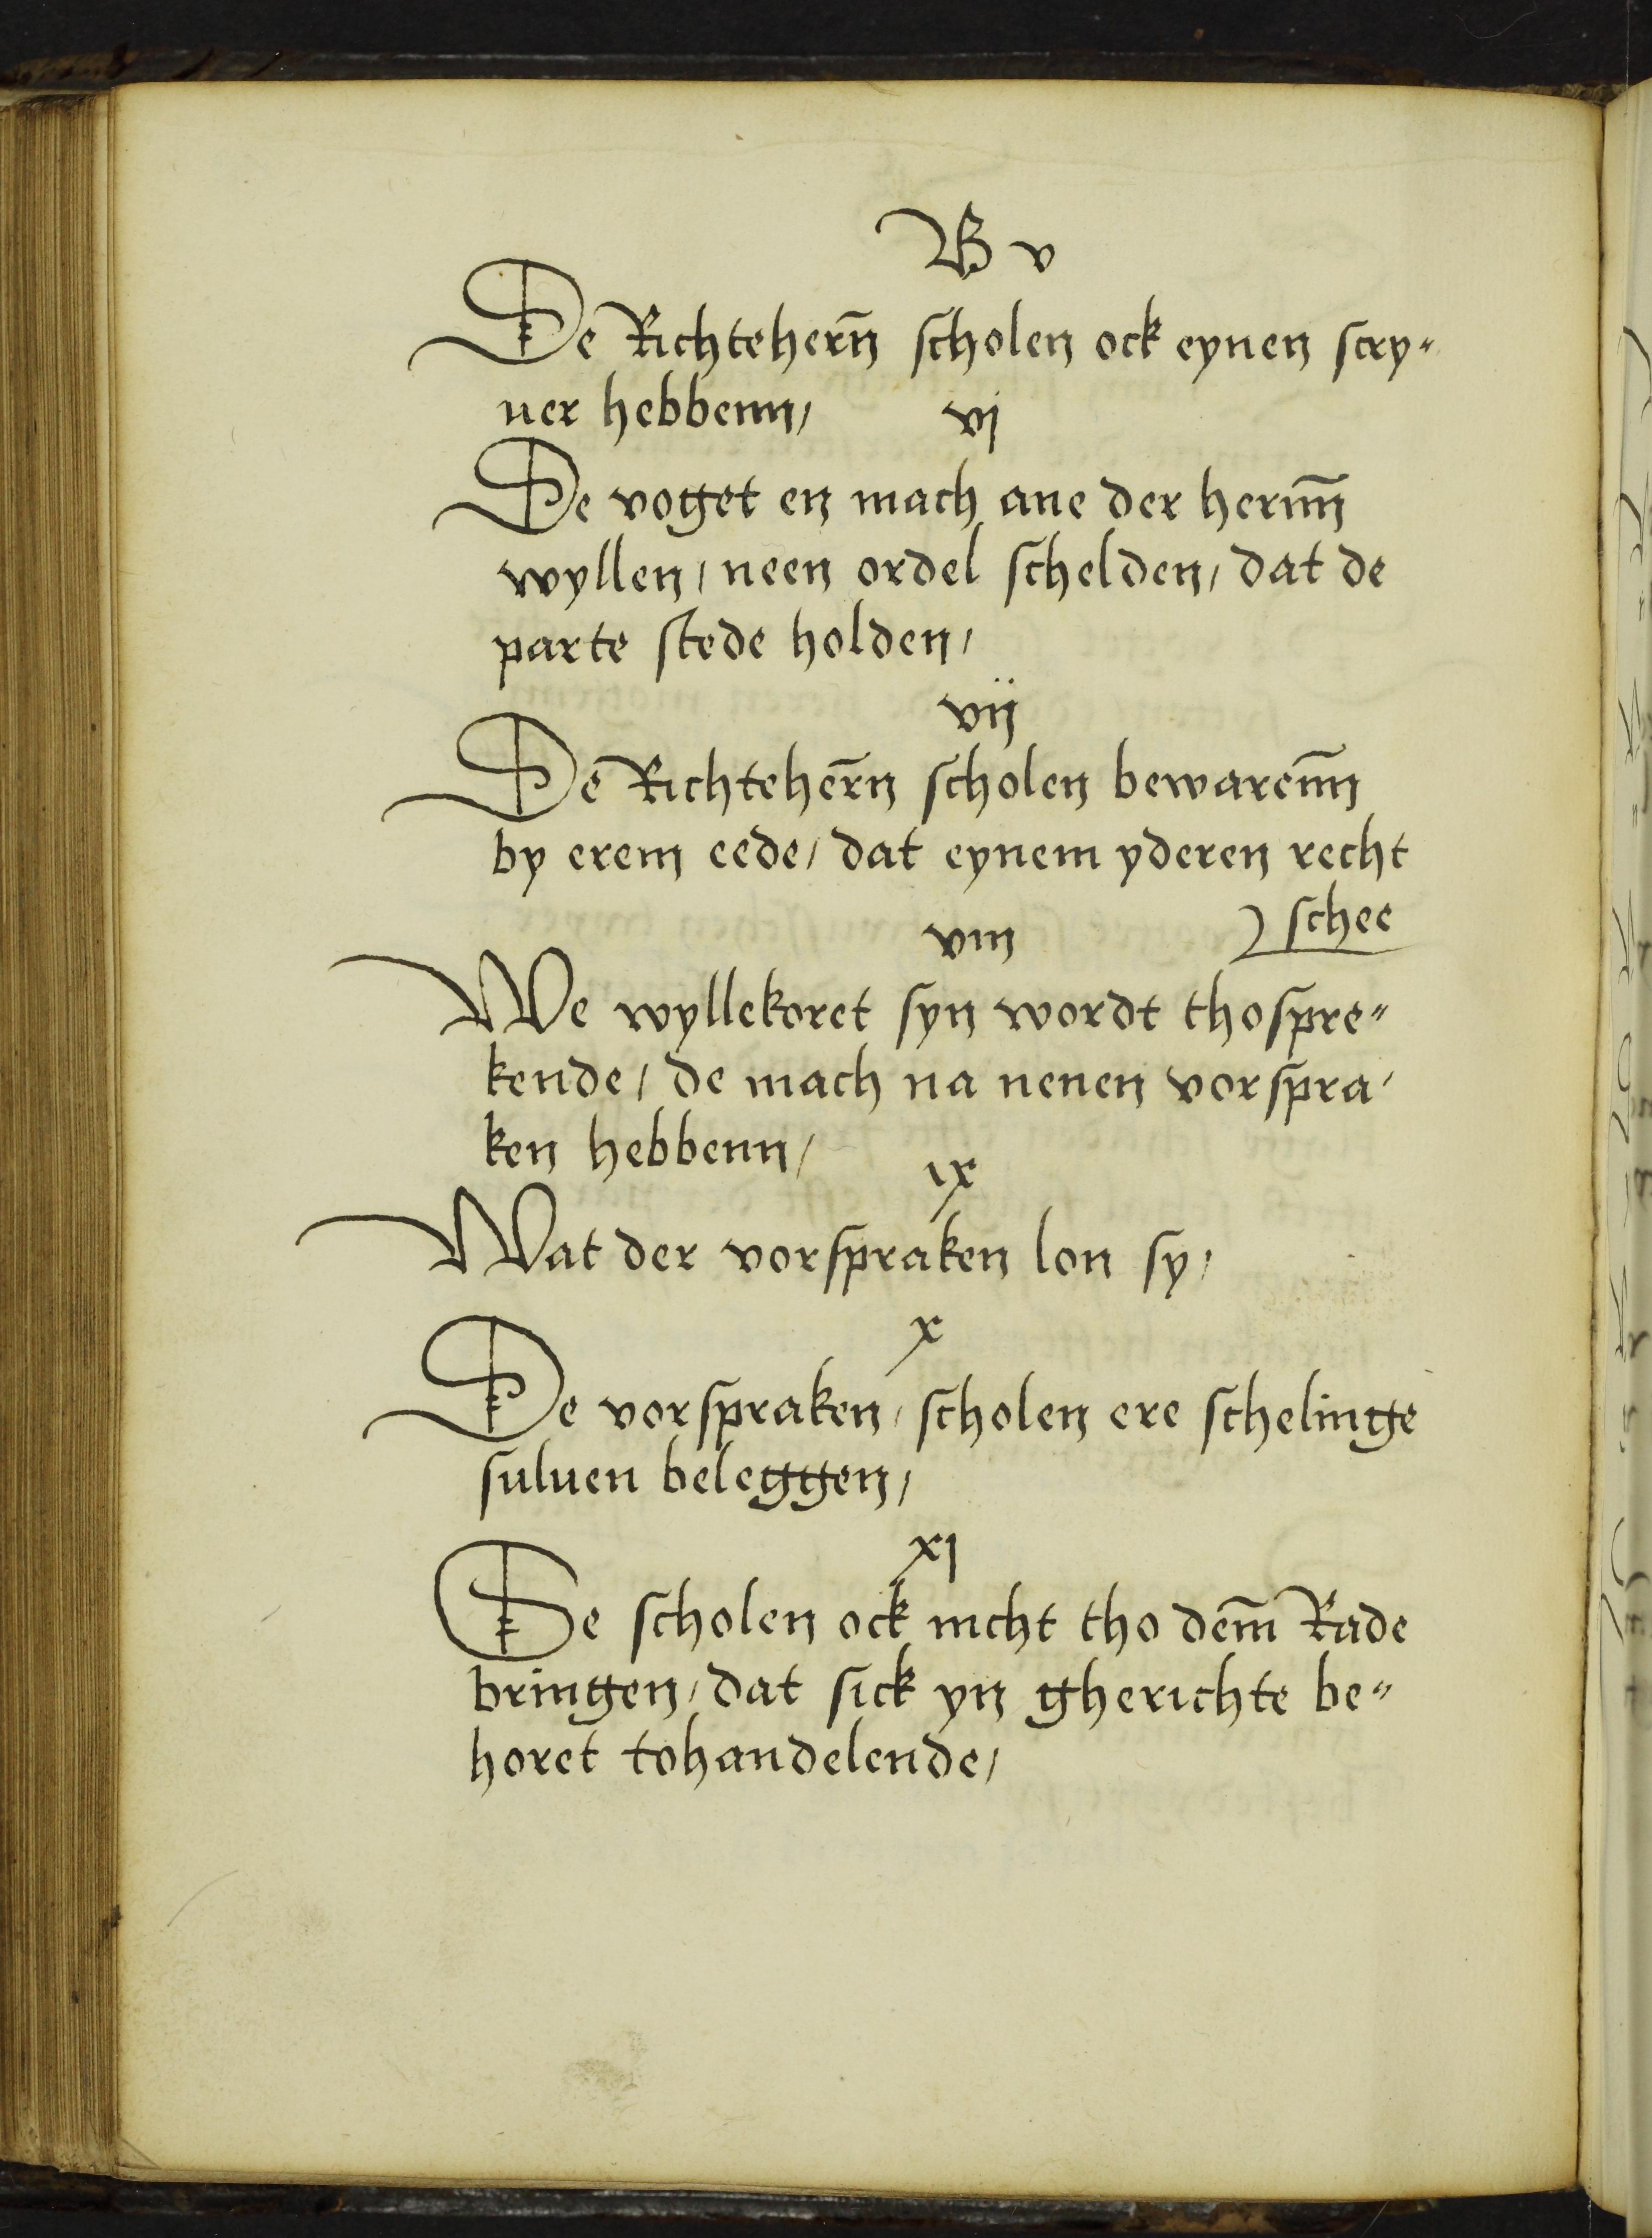 B v
De Richteherñ scholen ock eynen scry⸗
uer hebbenn/
vi
De voget en mach ane der hernn̄
wyllen/ neen ordel schelden/ dat de
parte stede holden/
vij
De Richtehern̄ scholen bewarenn̄
by erem eede/ dat eynem yderen recht
schee
viii
We wyllekoret syn wordt thospre⸗
kende/ de mach na nenen vorspra/
ken hebbenn/
ix
Wat der vorspraken lon sy/
x
De vorspraken/ scholen ere schelinge
suluen beleggen/
xi
Se scholen ock nicht tho dem̄ Rade
bringen/ dat sick yn gherichte be⸗
horet tohandelende/